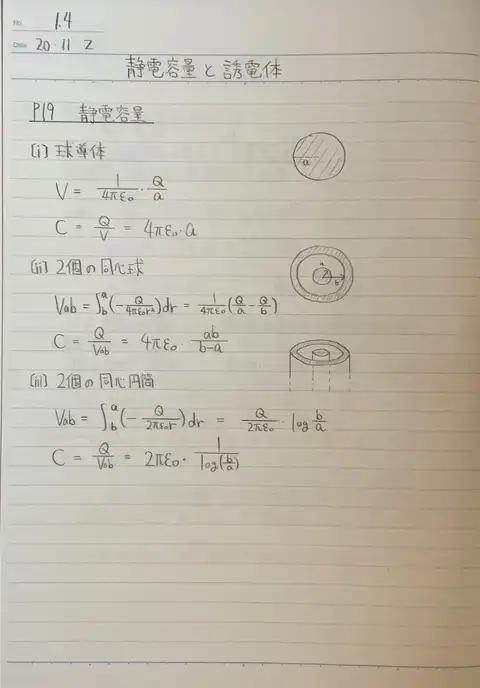 No. 1.4
Date 20・11 2
静電容量と誘電体
P19 静電容量
[i] 球導体
a
V = 1/4πε₀ ・ Q/a
C = Q/V = 4πε₀・a
[ii] 2個の同心球
a
b
Vab = ∫_b^a (-Q/4πε₀r²)dr = 1/4πε₀ (Q/a - Q/b)
C = Q/Vab = 4πε₀・ ab/b-a
[iii] 2個の同心円筒
Vab = ∫_b^a (-Q/2πε₀r)dr = Q/2πε₀ ・ log b/a
C = Q/Vab = 2πε₀・ 1/log(b/a)